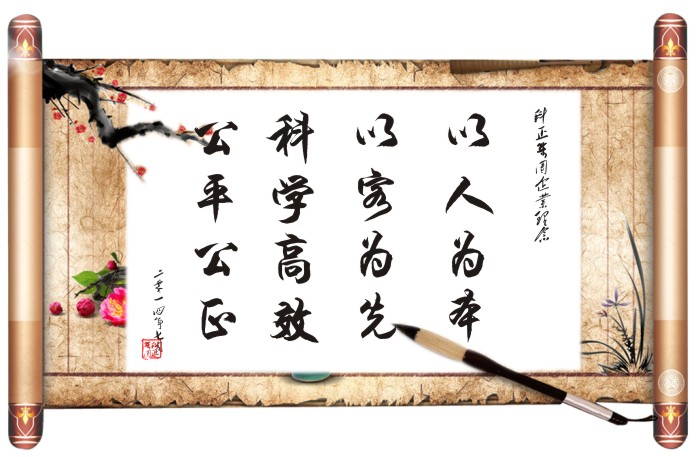 科正集团企业理念
以人为本
以客为先
科学高效
公平公正
二零一四年七月